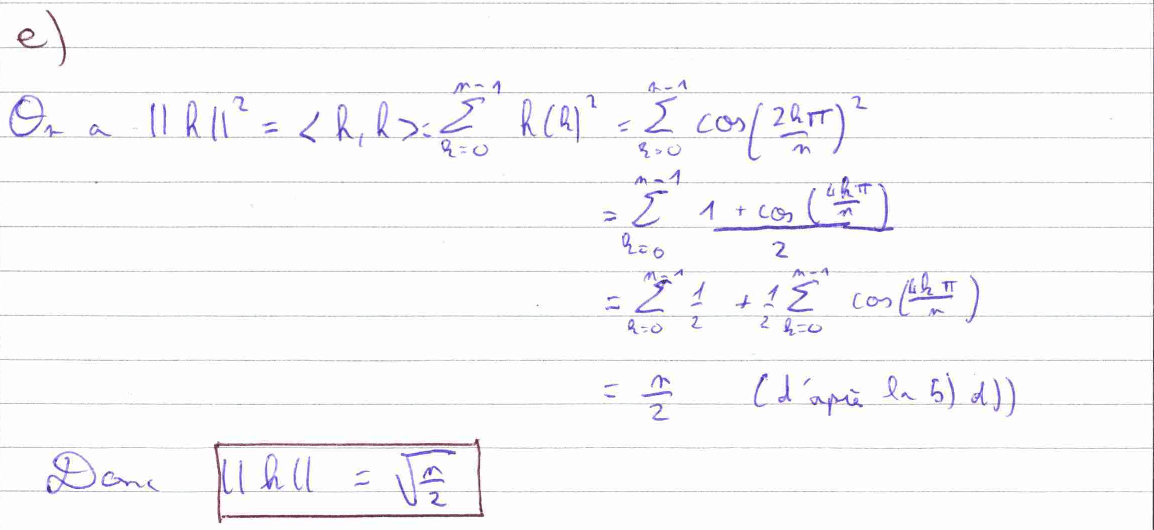 e)
On a ||h||² = <h, h> = ∑_{k=0}^{n-1} h(k)² = ∑_{k=0}^{n-1} cos(2kπ/n)²
= ∑_{k=0}^{n-1} (1 + cos(4kπ/n))/2
= ∑_{k=0}^{n-1} 1/2 + 1/2 ∑_{k=0}^{n-1} cos(4kπ/n)
= n/2 (d'après la 5) d))
Donc ||h|| = √(n/2)